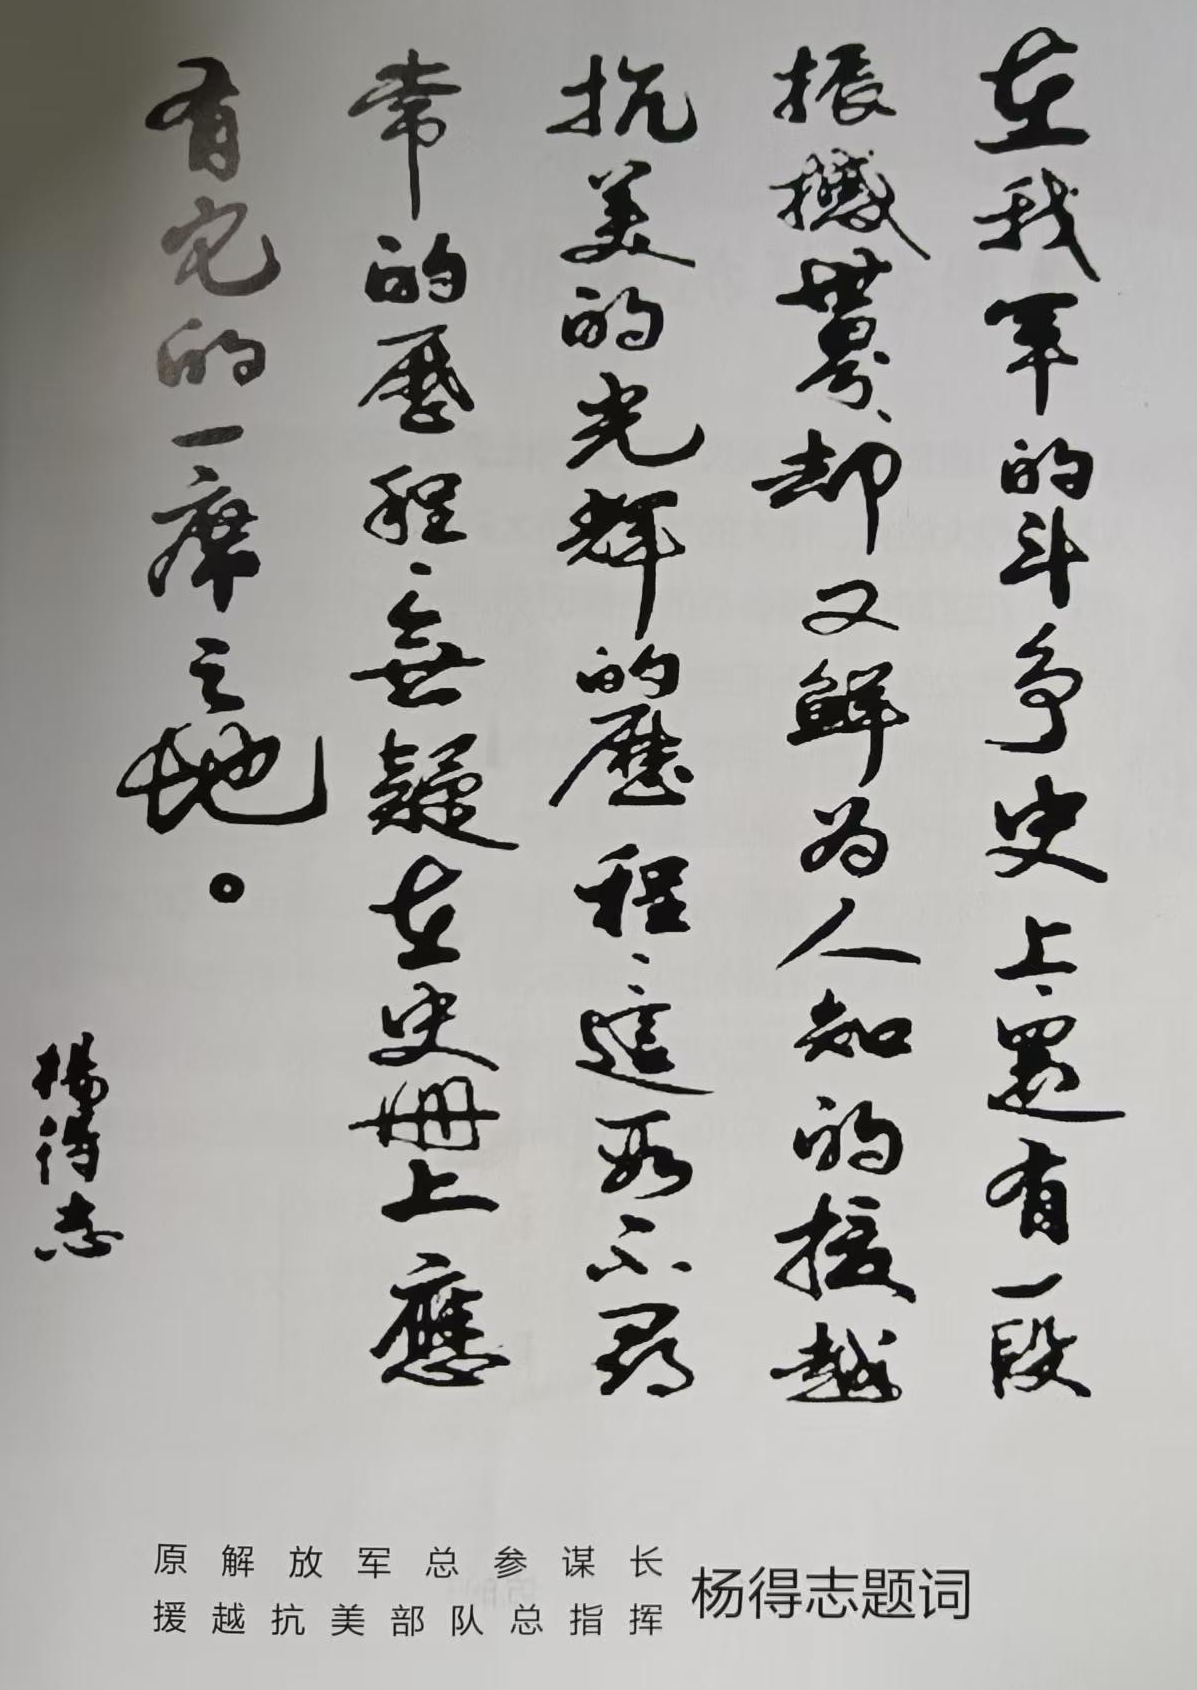 在我军的斗争史上、还有一段
振撼世界、却又鲜为人知的援越
抗美的光辉的歷程、這段不尋
常的歷程、無疑在史册上應
有它的一席之地。
楊得志
原解放军总参谋长
援越抗美部队总指挥
杨得志题词